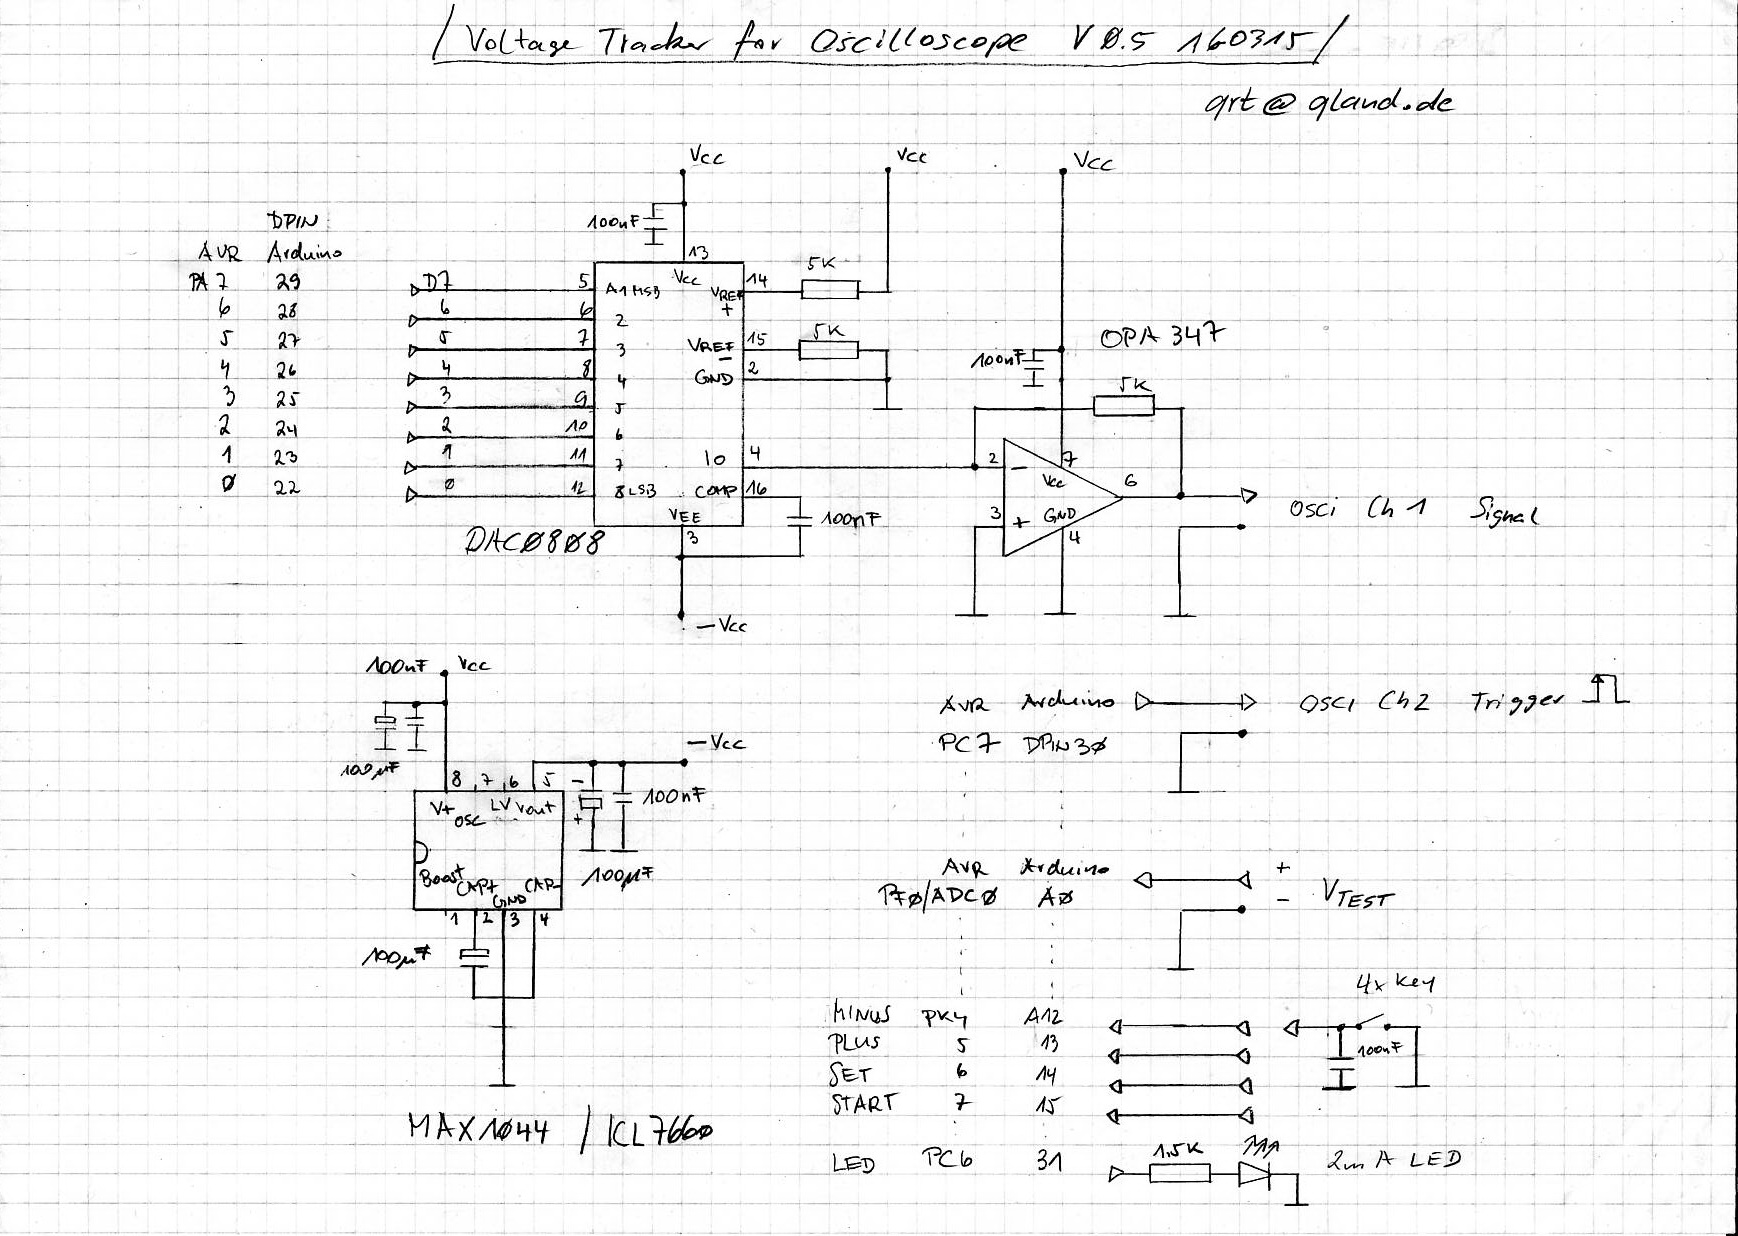 / Voltage Tracker for Oscilloscope V 0.5 160315 /
qrt@qland.de
Vcc Vcc Vcc
DPIN
AVR Arduino
PA 7 29
6 28
5 27
4 26
3 25
2 24
1 23
0 22
D7 5
6 6
5 7
4 8
3 9
2 10
1 11
0 12
100nF
13
Vcc
A1 MSB
2
3
4
5
6
7
8 LSB
VREF + 14 5K
VREF - 15 5K
GND 2
IO 4
COMP 16
100nF
VEE
3
DAC0808
-Vcc
OPA 347
100nF
5K
2 - 7
Vcc
6
3 + GND
4
Osci Ch 1 Signal
100nF Vcc
100µF
8 7 6 5
V+ OSC LV Vout
-Vcc
- +
100nF
100µF
Boost CAP+ GND CAP-
1 2 3 4
100µF
MAX1044 / ICL7660
AVR Arduino Osci Ch2 Trigger
PC7 DPIN30
AVR Arduino
PF0/ADC0 A0
+
- VTEST
4x Key
100nF
MINUS PK4 A12
PLUS 5 13
SET 6 14
START 7 15
LED PC6 31 1.5K 2mA LED